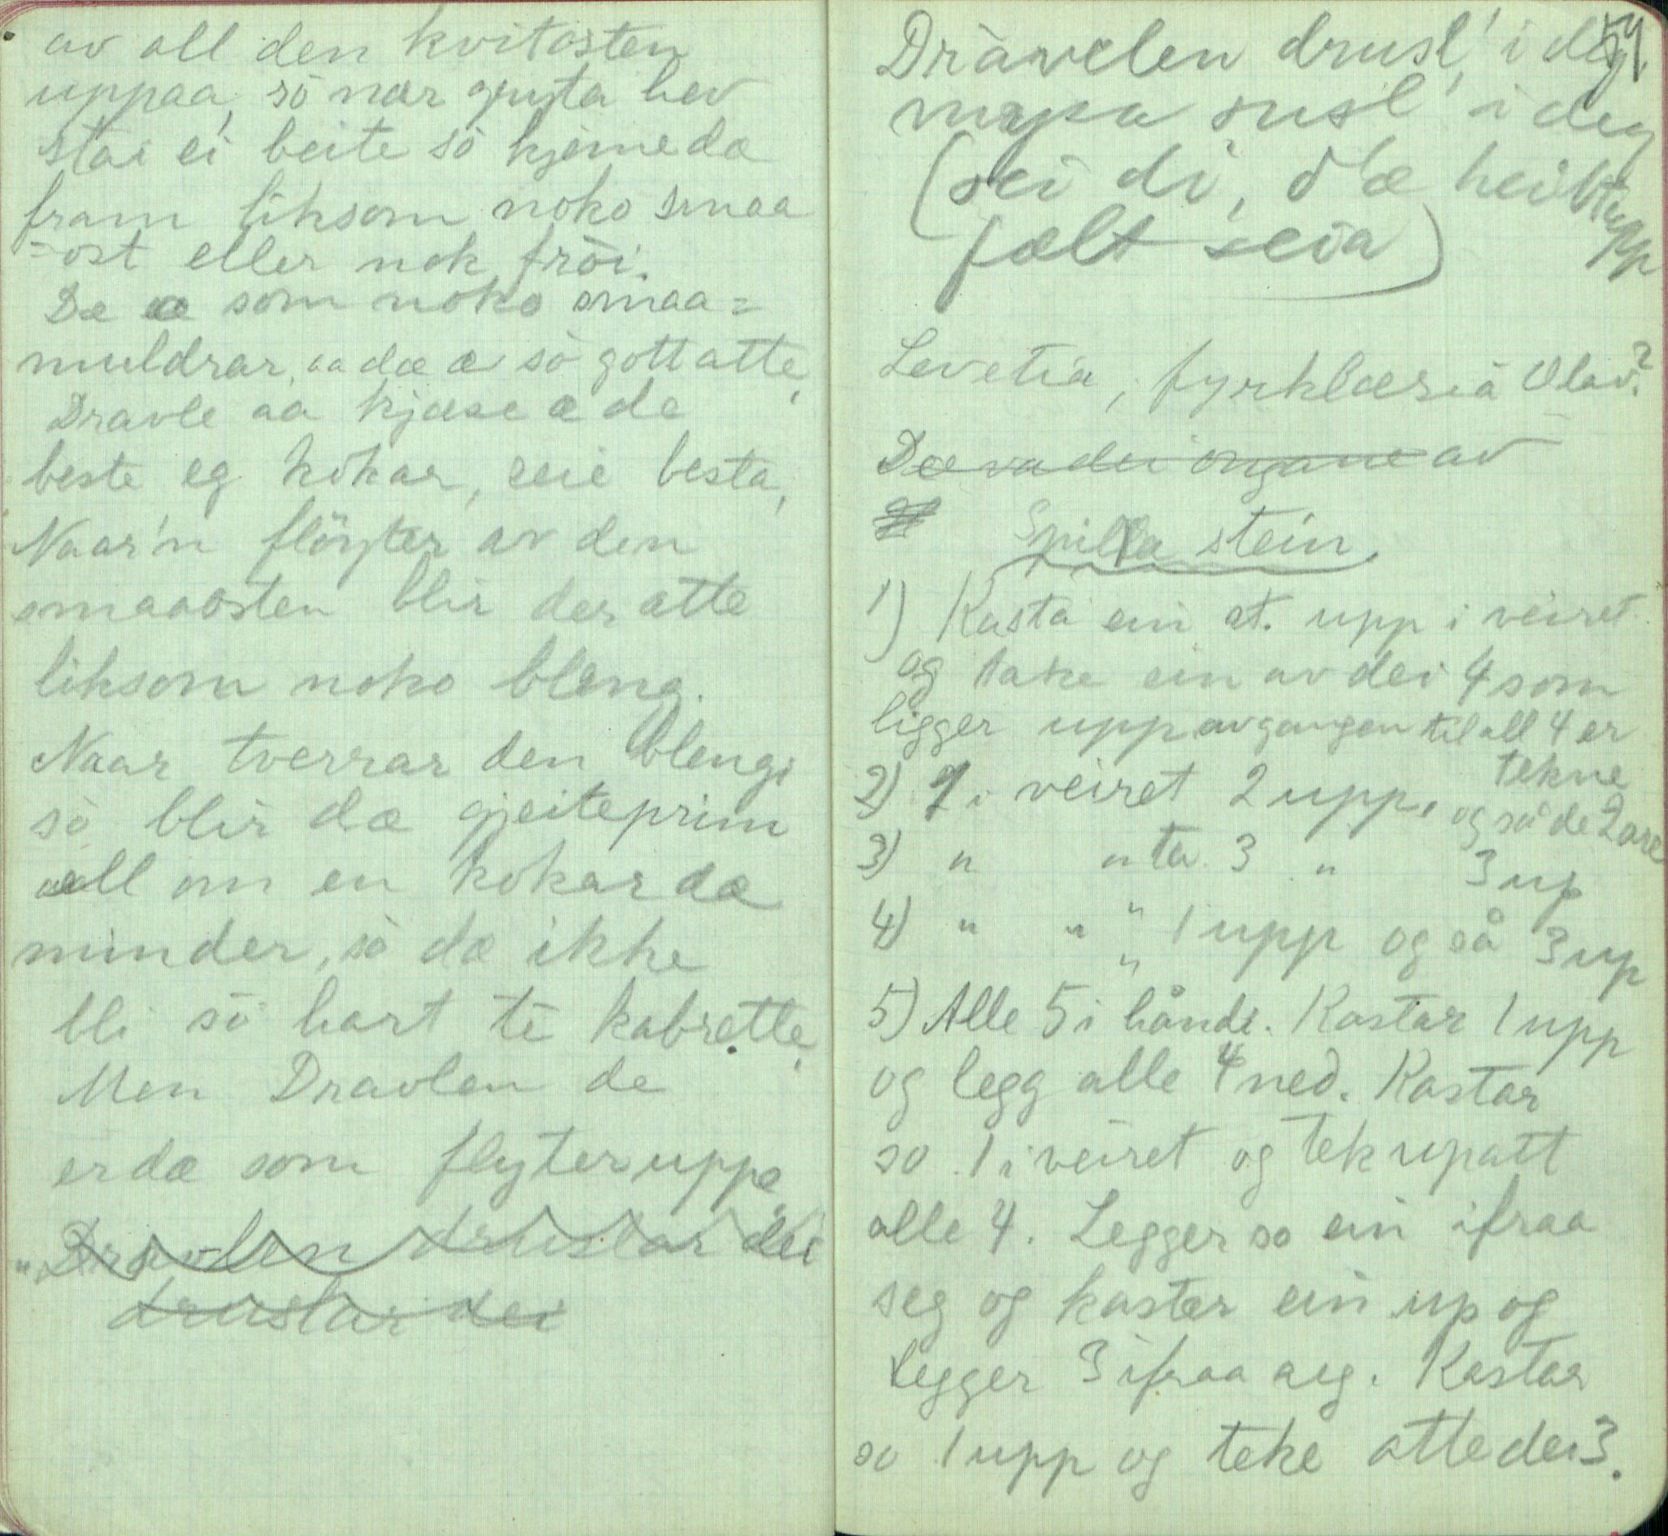 av all den kvitosten
uppaa, sò nær gryta hev
stai ei beite sò kjeme dæ
fram liksom noko smaa
=ost eller nok fròi.
Dæ æ som noko smaa=
muldrar, aa dæ æ sò gott atte,
Dravle aa kjæse æ de
beste eg kokar, seie besta,
Naar'n flöyter av den
smaaosten blir der atte
liksom noko bleng.
Naar tverrar den blengi
sò blir dæ gjeiteprim
æll om en kokar dæ
minder, sò dæ ikke
bli sò hart te kabrette,
Men Dravlen de
er dæ som flyter uppe
"Dravlen druslar dei
druslar dei
Dràvelen drusl' i deg
mysa susl' i deg
(sei di, d'æ heilt upp
fælt seia)
Levetia, fyrklæsiå Olav?
Dæ va dei ongane av
Spilla stein.
1) Kasta ein st. upp i veiret
og take ein av dei 4 som
ligger upp avgangen til all 4 er
tekne
2) 1 i veiret 2 upp, og så de 2 are
3) " " ta 3 " 3 up
4) " " " 1 upp og så 3 up
5) Alle 5 i hånde. Kastar 1 upp
og legg alle 4 ned. Kastar
so 1 i veiret og tek upatt
alle 4. Legger so ein ifraa
seg og kaster ein up og
legger 3 ifraa seg. Kastar
so 1 upp og teke atte dei 3.